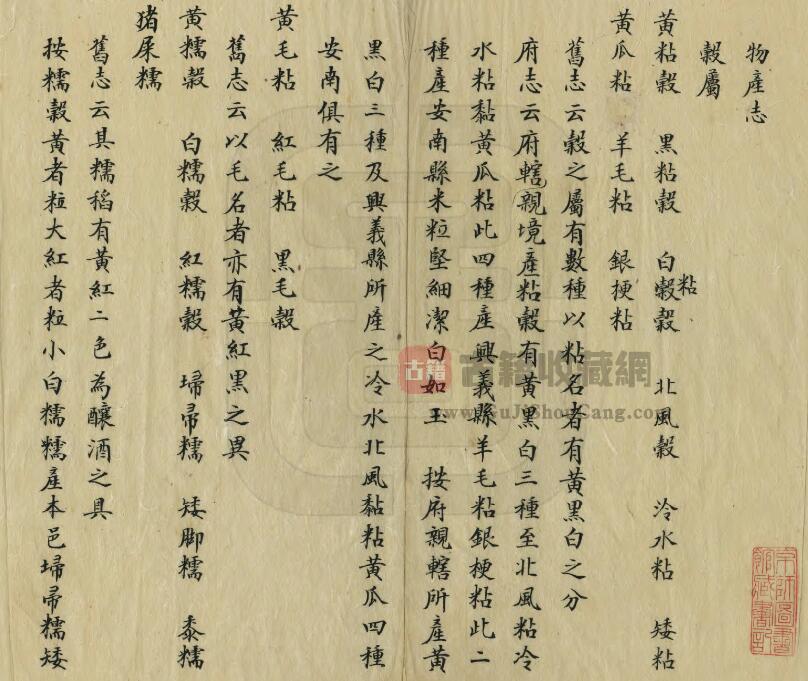 物產志
穀屬
黃粘穀 黑粘穀 白粘穀穀 北風穀 冷水粘 矮粘
黃瓜粘 羊毛粘 銀梗粘
舊志云穀之屬有數種以粘名者有黃黑白之分
府志云府轄親境產粘穀有黃黑白三種至北風粘冷
水粘黏黃瓜粘此四種產興義縣羊毛粘銀梗粘此二
種產安南縣米粒堅細潔白如玉 按府親轄所產黃
黑白三種及興義縣所產之冷水北風黏粘黃瓜四種
安南俱有之
黃毛粘 紅毛粘 黑毛穀
舊志云以毛名者亦有黃紅黑之異
黃糯穀 白糯穀 紅糯穀 埽帚糯 矮脚糯 黍糯
猪屎糯
舊志云其糯稻有黃紅二色為釀酒之具
按糯穀黃者粒大紅者粒小白糯糯產本邑埽帚糯矮
古籍
古籍收藏網
www.GuJiShouCang.com